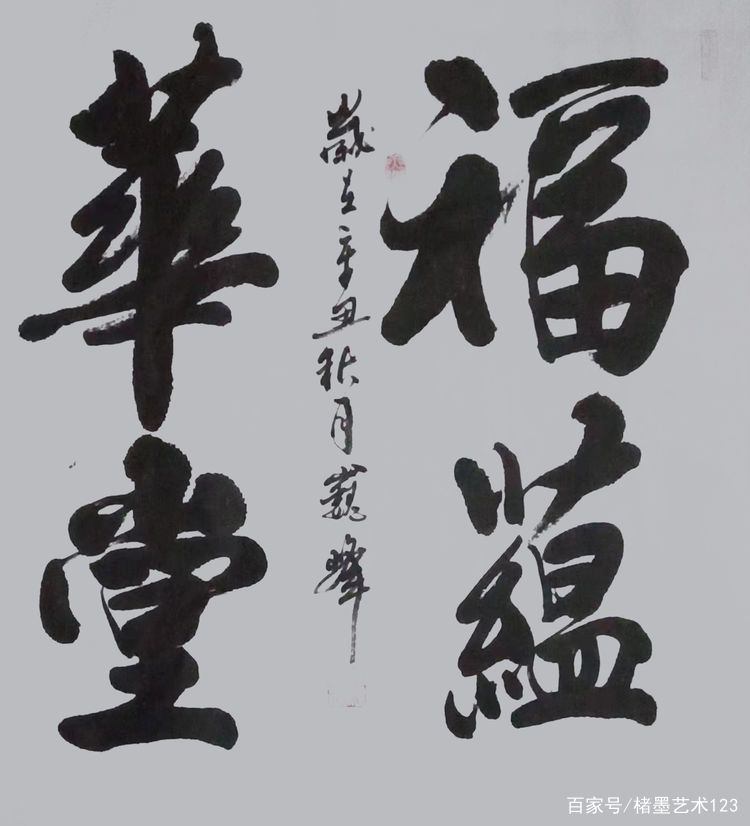 福蘊
華堂
歲在辛丑秋月巍峰
百家号/楮墨艺术123